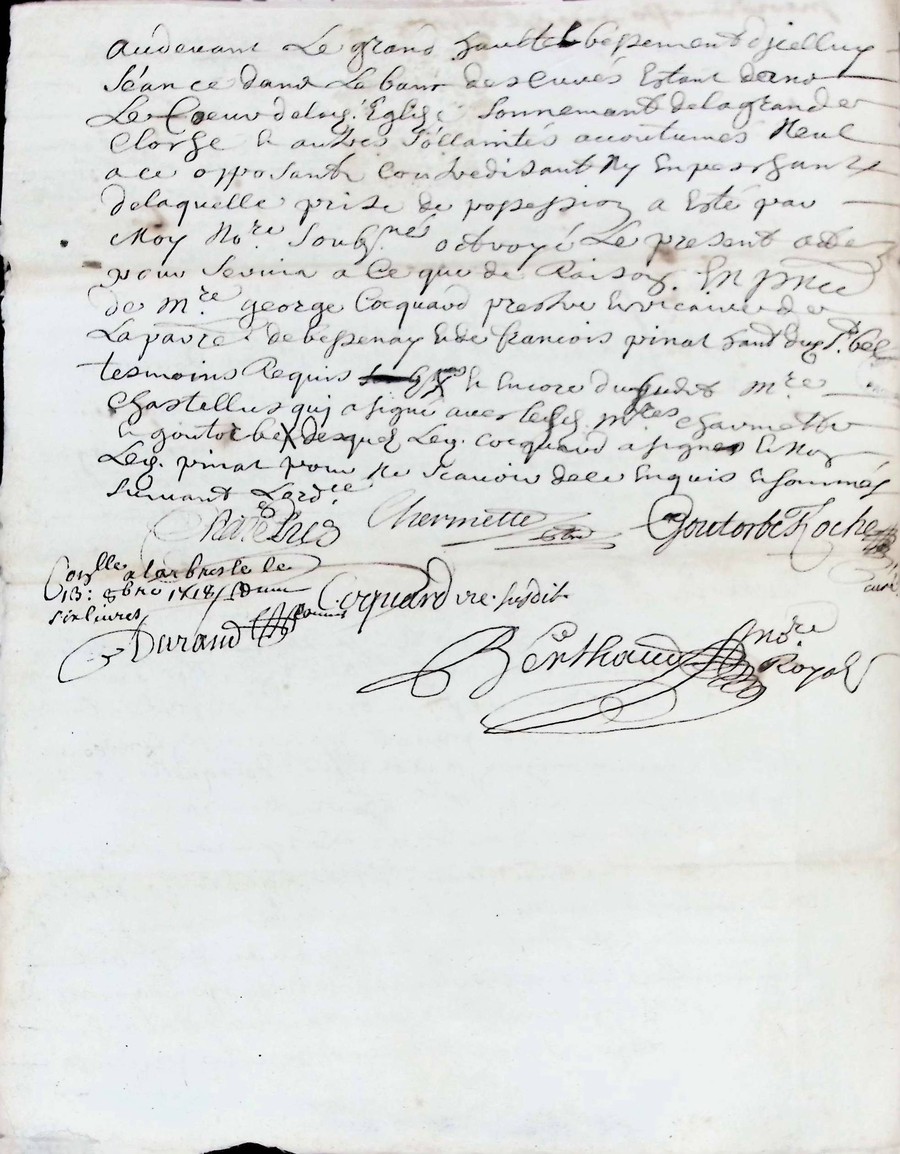 audevant Le grand hautel bessement dicelluy
séance dans La banc des curés Estant dans
Le Coeur delad. Eglise sonnemant de la grande
Clorhe et autres sollamtés accoutumés Neul
a ce opposant Contredisant Ny Enpeschant
de laquelle prise de posession a Esté par
Moy No.re soubs.né octroyé Le present acte
pour servir a Ce que de Raison En pñce
de M.re george Cocquard prestre Et vicaire de
La parre. de bessenay et de françois pinat
tesmoins Requis et Encore dud. M.re
Chastellus qui a signé avec lesd. M.res Charmette
et goutorbe desquels Led. Cocquard a signé et Non
Led. pinat pour Ne scavoir de ce Enquis et sommés
suivant Lord.ce
Chastellus Chermette Goutorbe Roche
curé
Conllé a larbresle le
13: 8bre 1718
six livres
Durand Cocquard vic. susdit
Berthaud no.re
Royal